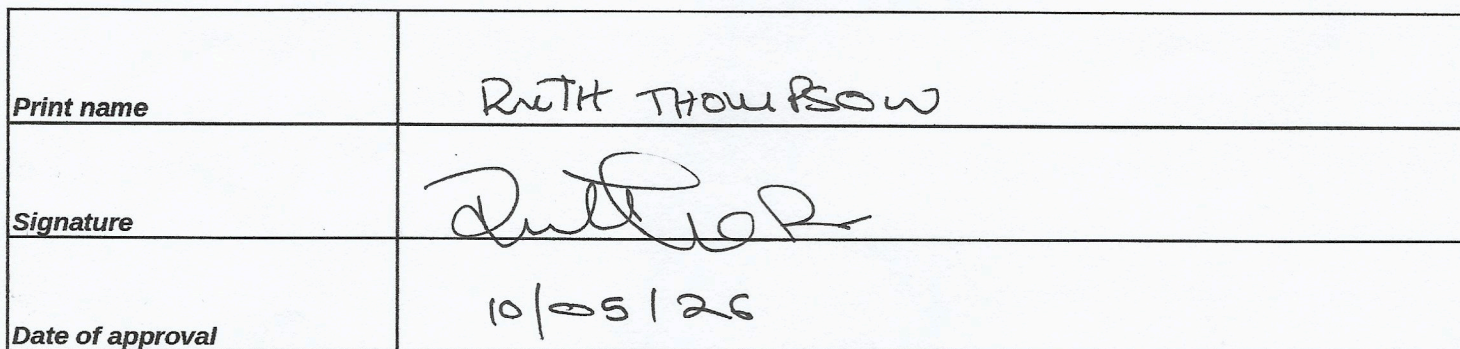 Print name RUTH THOMPSON
Signature
Date of approval 10/05/26